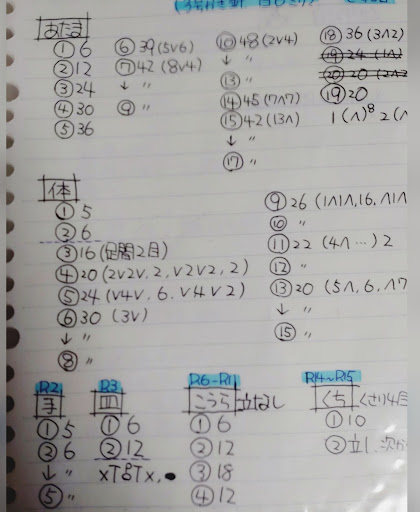 あたま
① 6
② 12
③ 24
④ 30
⑤ 36
⑥ 39 (5V6)
⑦ 42 (8V4)
↓ 〃
⑨ 〃
⑩ 48 (2V4)
↓ 〃
⑬ 〃
⑭ 45 (7Λ7)
⑮ 42 (13Λ)
↓ 〃
⑰ 〃
⑱ 36 (3Λ2)
⑲ 24 (1Λ)
⑳ 20 (2Λ2
⑲ 20
1(Λ)⁸ 2(Λ
体
① 5
② 6
③ 16 (足間2目)
④ 20 (2V2V.2, V2V2, 2)
⑤ 24 (V4V, 6, V4V2)
⑥ 30 (3V)
↓ 〃
⑧ 〃
⑨ 26 (1Λ1Λ, 16, Λ1Λ
⑩ 〃
⑪ 22 (4Λ…) 2
⑫ 〃
⑬ 20 (5Λ, 6, Λ7
↓ 〃
⑮ 〃
R2
手
① 5
② 6
↓ 〃
⑤ 〃
R3
① 6
② 12
R6-R11
こうら 立なし
① 6
② 12
③ 18
④ 12
R14~R15
くち くさり4目
① 10
② 立し、次から